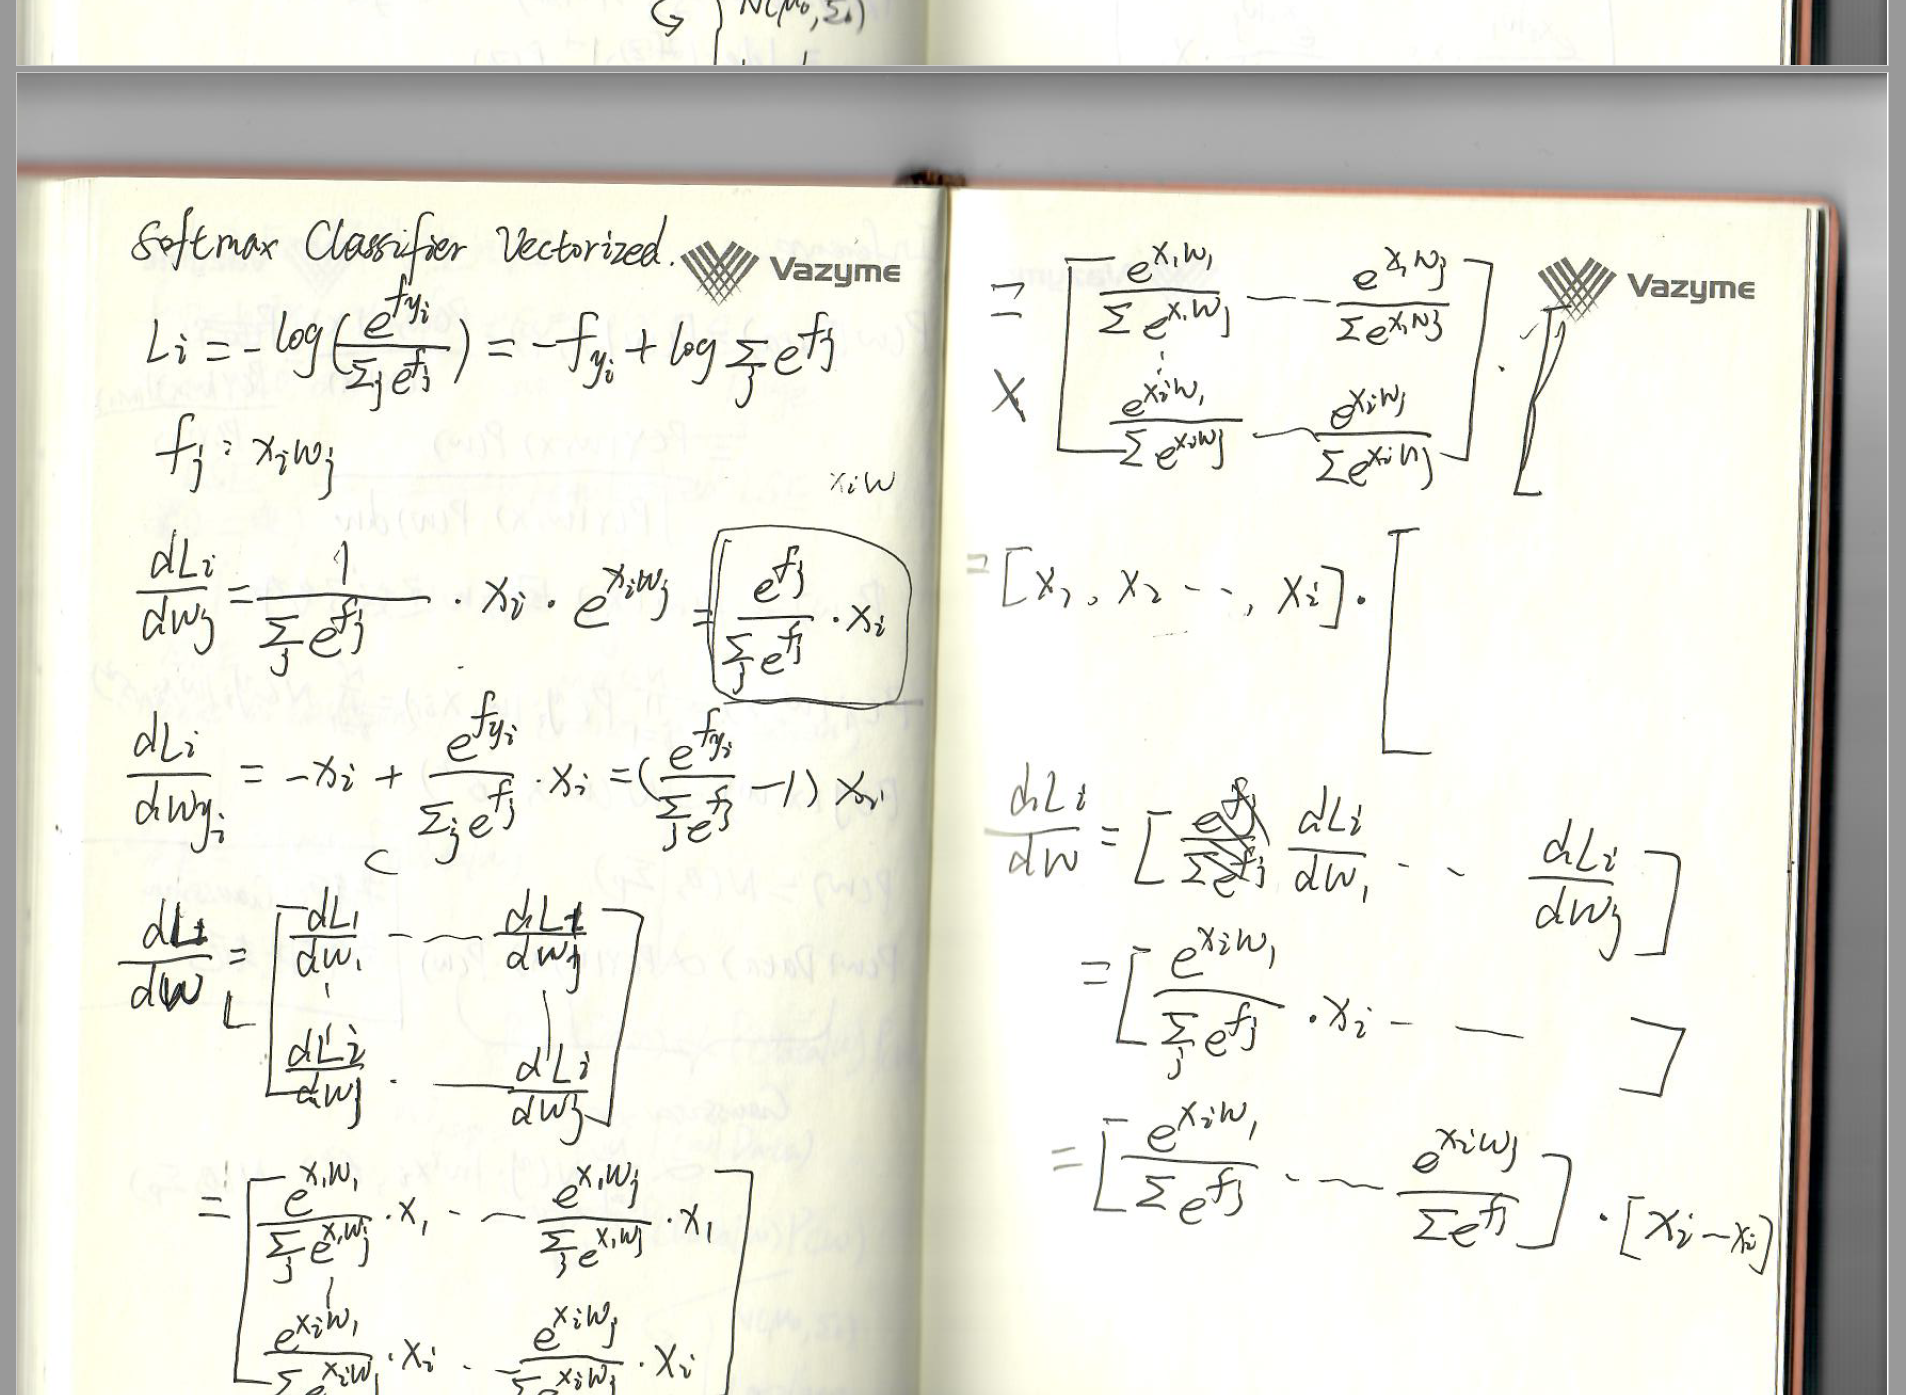 N(μ₀, Σ₀)
Softmax Classifier Vectorized.
Vazyme
Li = -log(e^{f_{yi}} / Σ_j e^{fj}) = -f_{yi} + log Σ_j e^{fj}
fj : xiwj
xiw
dLi/dwj = 1/(Σ_j e^{fj}) · xi · e^{xiwj} = [e^{fj} / Σ_j e^{fj} · xi
dLi/dw_{yi} = -xi + e^{f_{yi}} / Σ_j e^{fj} · xi = (e^{f_{yi}} / Σ_j e^{fj} - 1) xi
dLi/dw = [dL1/dw1 -- dL1/dwj
dLi/dwj · — dLi/dwj]
= [e^{x1w1} / Σ_j e^{x1wj} · x1 -- e^{x1wj} / Σ_j e^{x1wj} · x1
e^{xiw1} / Σ e^{xiwj} · xi -- e^{xiwj} / Σ e^{xiwj} · xi]
Vazyme
= [e^{x1w1} / Σ e^{x1wj} --- e^{x1wj} / Σ e^{x1wj}
X e^{xiw1} / Σ e^{xiwj} -- e^{xiwj} / Σ e^{xiwj}] · [
= [x1, x2 --, xi] · [
dLi/dw = [dLi/dw1 -- dLi/dwj]
= [e^{xiw1} / Σ_j e^{fj} · xi -- ]
= [e^{xiw1} / Σ e^{fj} --- e^{xiwj} / Σ e^{fj}] · [xi - xi]